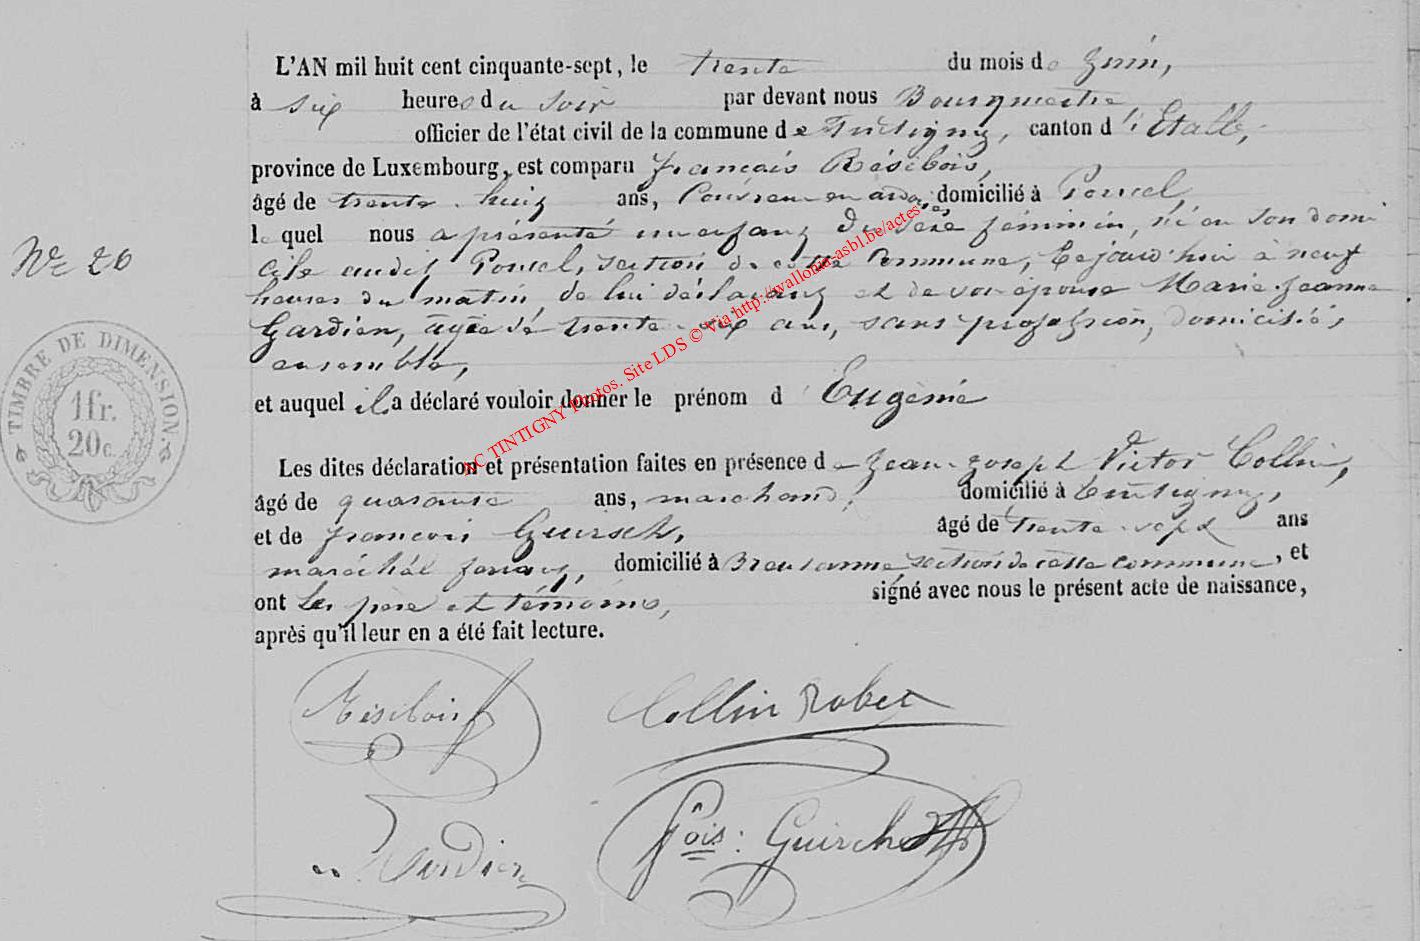 L'AN mil huit cent cinquante-sept, le trente du mois de Juin,
à six heures du soir par devant nous Bourgmestre
officier de l'état civil de la commune de Tintigny, canton d'Etalle,
province de Luxembourg, est comparu françois Résibois,
âgé de trente-huit ans, Couvreur en ardoises, domicilié à Poncel,
le quel nous a présenté un enfant du sexe féminin, né en son domi
cile audit Poncel, section de cette Commune, Cejourd'hui à neuf
heures du matin de lui déclarant et de son épouse Marie Jeanne
Gardien, âgée de trente-six ans, sans profession, domiciliés
ensemble,
et auquel il a déclaré vouloir donner le prénom d' Eugénie
N° 26
TIMBRE DE DIMENSION.
1 fr.
20 c.
Les dites déclaration et présentation faites en présence de Jean-Joseph Victor Collin,
âgé de quarante ans, marchand, domicilié à Tintigny,
et de françois Guirsch, âgé de trente-sept ans
maréchal ferrant, domicilié à Breuvanne section de cette commune, et
ont les père et témoins, signé avec nous le présent acte de naissance,
après qu'il leur en a été fait lecture.
Résibois
Collin Robert
fçois: Guirch
AC TINTIGNY Photos. Site LDS © Via http://wallonia-asbl.be/actes